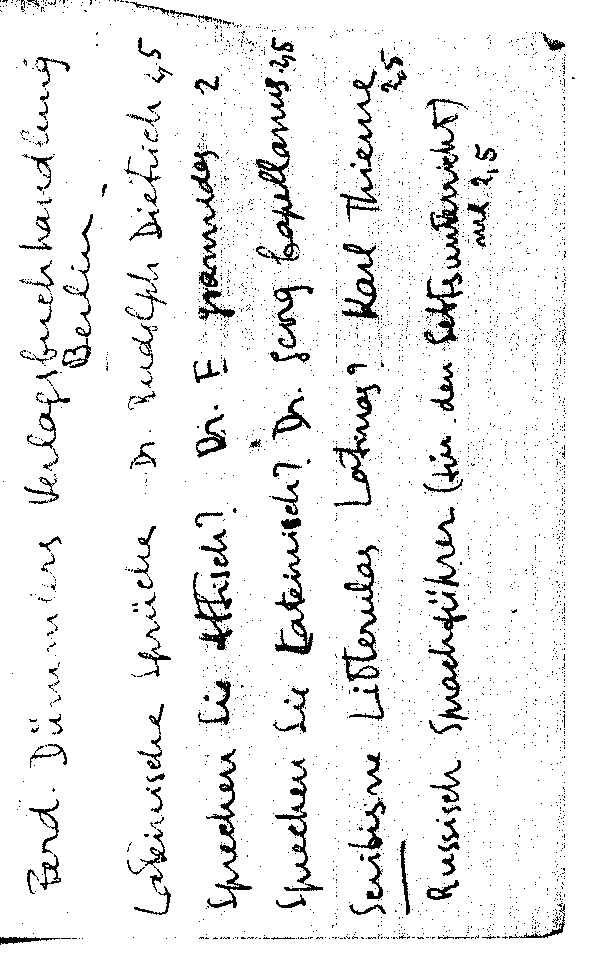 Ferd. Dümmlers Verlagsbuchhandlung
Berlin
Lateinische Sprüche Dr. Rudolph Dietrich 2,5
Sprechen Sie Attisch? Dr. E Joannides 2
Sprechen Sie Lateinisch? Dr. Georg Capellanus 2,5
Scribisne Litterulas Latinas? Karl Thieme
2,5
Russisch Sprachführer (für den Selbstunterricht)
2,5